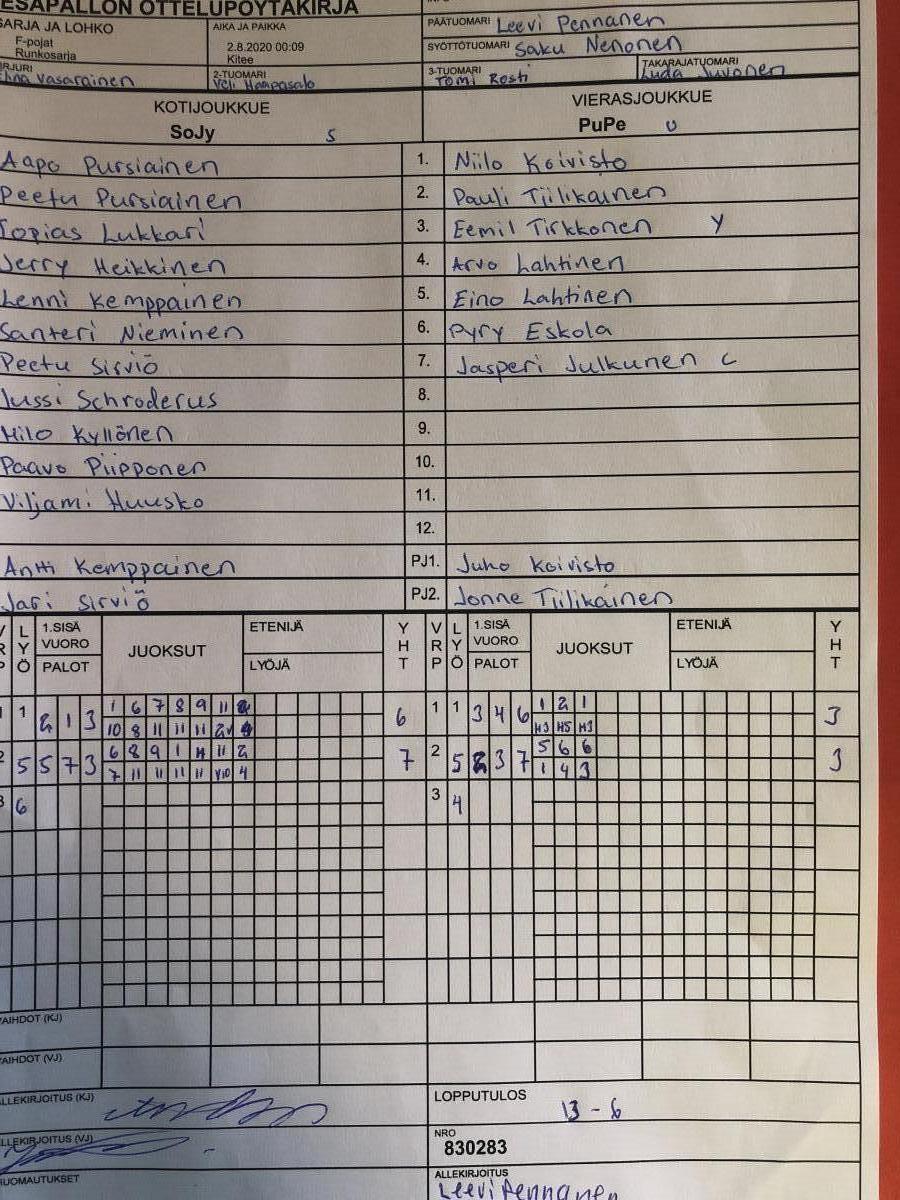 ESÄPALLON OTTELUPÖYTÄKIRJA
SARJA JA LOHKO AIKA JA PAIKKA PÄÄTUOMARI Leevi Pennanen
F-pojat 2.8.2020 00:09 SYÖTTÖTUOMARI Saku Nenonen
Runkosarja Kitee
RJURI Vasarainen 2-TUOMARI Veli Hampasalo 3-TUOMARI Tomi Rosti TAKARAJATUOMARI Luda Juvonen
KOTIJOUKKUE VIERASJOUKKUE
SoJy S PuPe U
Aapo Pursiainen 1. Niilo Koivisto
Peetu Pursiainen 2. Pauli Tiilikainen
Topias Lukkari 3. Eemil Tirkkonen Y
Jerry Heikkinen 4. Arvo Lahtinen
Lenni Kemppainen 5. Eino Lahtinen
Santeri Nieminen 6. Pyry Eskola
Peetu Sirviö 7. Jasperi Julkunen C
Jussi Schroderus 8.
Milo Kyllönen 9.
Paavo Piipponen 10.
Viljami Huusko 11.
12.
Antti Kemppainen PJ1. Juho Koivisto
Jari Sirviö PJ2. Jonne Tiilikainen
VRP LYÖ 1.SISÄ VUORO PALOT JUOKSUT ETENIJÄ LYÖJÄ YHT VRP LYÖ 1.SISÄ VUORO PALOT JUOKSUT ETENIJÄ LYÖJÄ YHT
1 1 2 1 3 1 6 7 8 9 11 6 1 1 3 4 6 1 2 1 3
10 8 11 11 11 H3 H5 H3
2 5 5 7 3 6 8 9 1 11 2 7 2 5 2 3 7 5 6 6 3
7 11 11 11 11 V10 4 1 4 3
3 6 3 4
AIHDOT (KJ)
AIHDOT (VJ)
ALLEKIRJOITUS (KJ) LOPPUTULOS 13 - 6
ALLEKIRJOITUS (VJ) NRO
830283
HUOMAUTUKSET ALLEKIRJOITUS
Leevi Pennanen